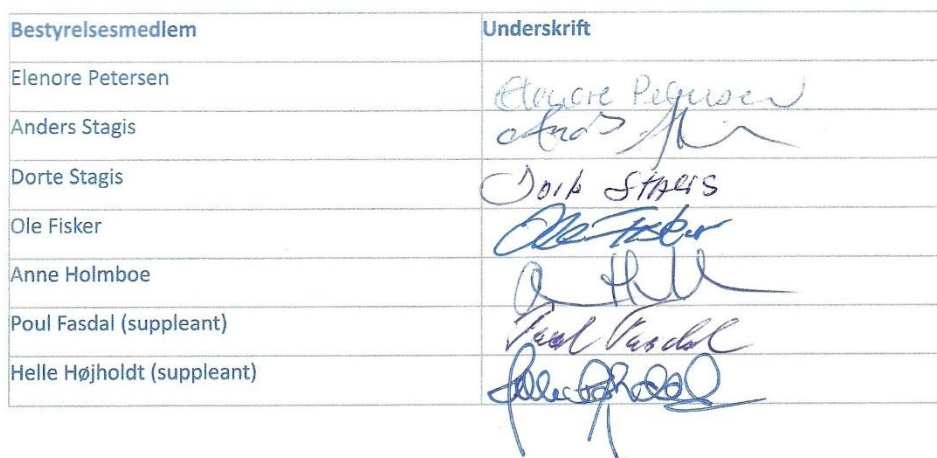 Bestyrelsesmedlem Underskrift
Elenore Petersen Elenore Petersen
Anders Stagis
Dorte Stagis Dorte STAGIS
Ole Fisker Ole Fisker
Anne Holmboe
Poul Fasdal (suppleant) Poul Fasdal
Helle Højholdt (suppleant)